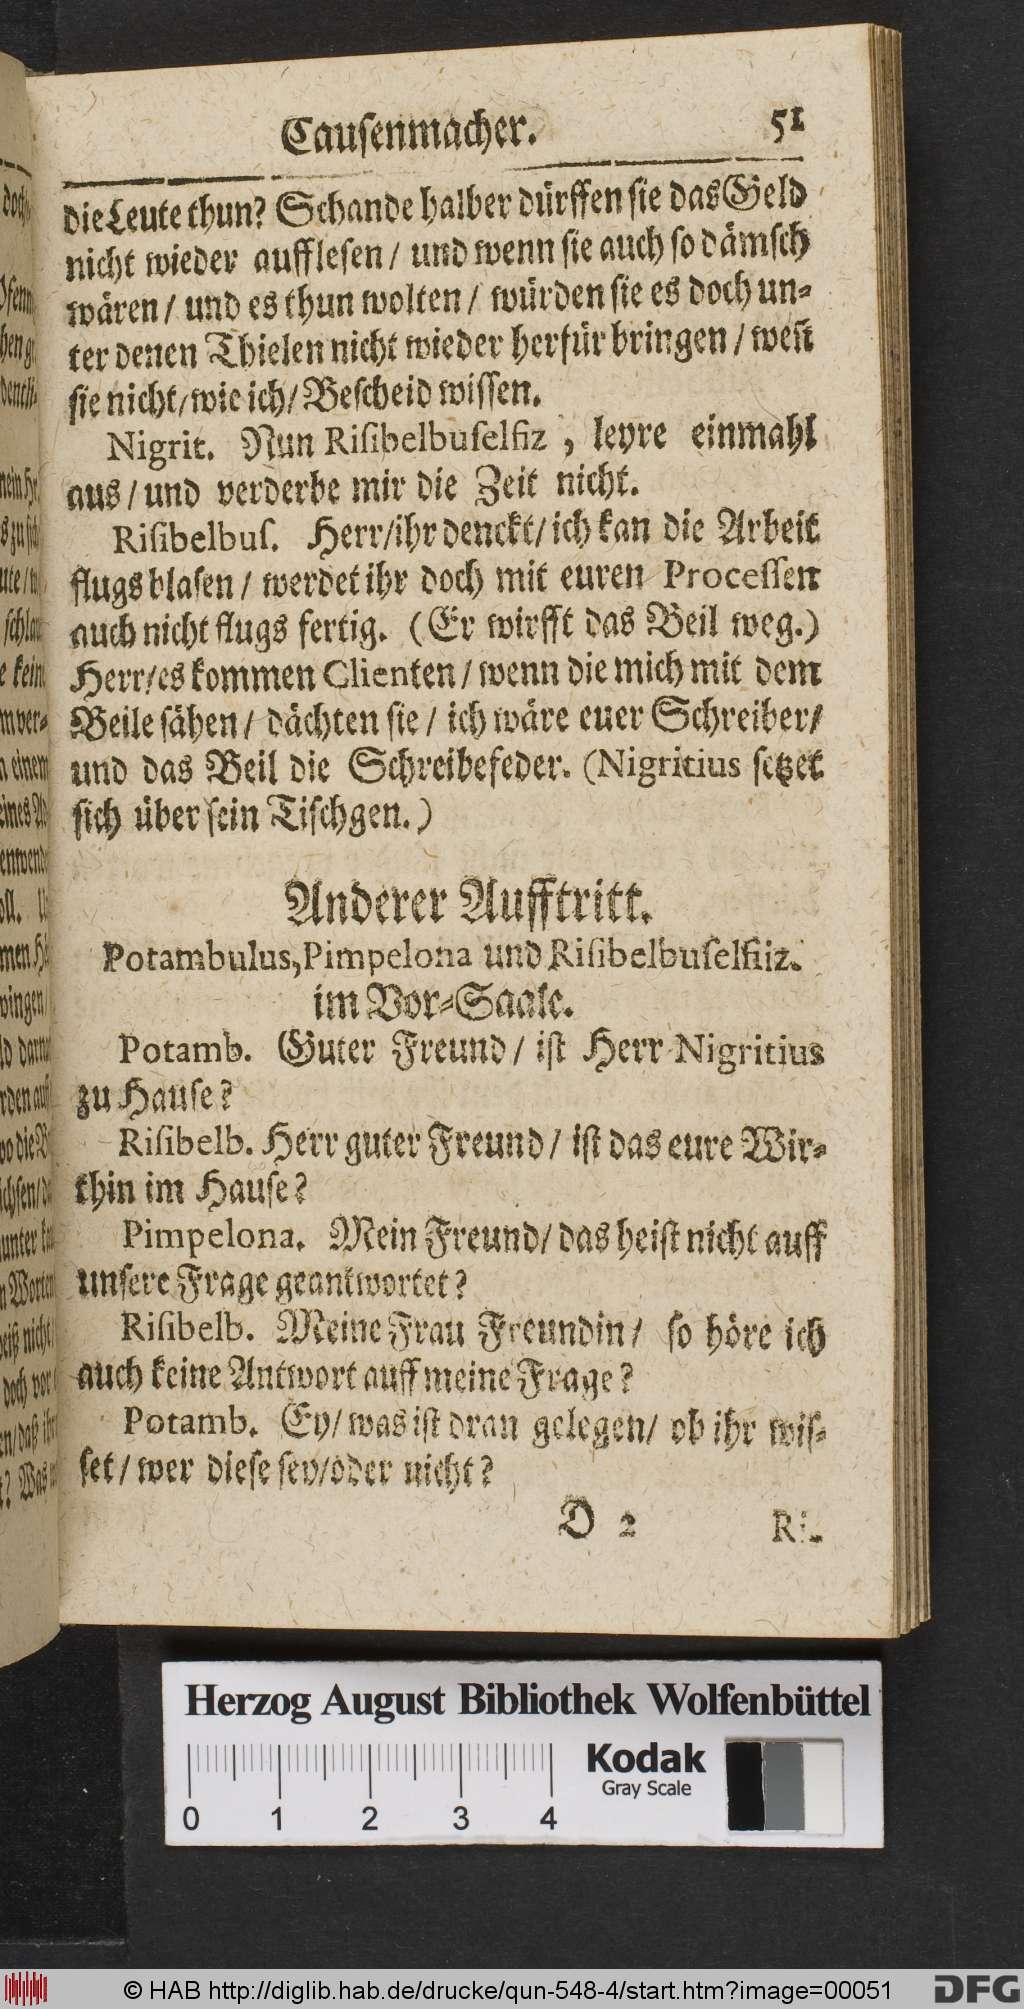 Causenmacher. 51
die Leute thun? Schande halber dürffen sie das Geld
nicht wieder aufflesen / und wenn sie auch so dämsch
wären / und es thun wolten / würden sie es doch un-
ter denen Thielen nicht wieder herfür bringen / weil
sie nicht / wie ich / Bescheid wissen.
Nigrit. Nun Risibelbuselfiz, leyre einmahl
aus / und verderbe mir die Zeit nicht.
Risibelbus. Herr / ihr denckt / ich kan die Arbeit
flugs blasen / werdet ihr doch mit euren Processen
auch nicht flugs fertig. (Er wirfft das Beil weg.)
Herr / es kommen Clienten / wenn die mich mit dem
Beile sähen / dächten sie / ich wäre euer Schreiber /
und das Beil die Schreibefeder. (Nigritius setzet
sich über sein Tischgen.)
Anderer Aufftritt.
Potambulus, Pimpelona und Risibelbuselfiiz.
im Vor-Saale.
Potamb. Guter Freund / ist Herr Nigritius
zu Hause?
Risibelb. Herr guter Freund / ist das eure Wir-
thin im Hause?
Pimpelona. Mein Freund / das heist nicht auff
unsere Frage geantwortet?
Risibelb. Meine Frau Freundin / so höre ich
auch keine Antwort auff meine Frage?
Potamb. Ey / was ist dran gelegen / ob ihr wis-
set / wer diese sey / oder nicht?
D 2 Ri-
Herzog August Bibliothek Wolfenbüttel
Kodak
Gray Scale
0 1 2 3 4
© HAB http://diglib.hab.de/drucke/qun-548-4/start.htm?image=00051
DFG